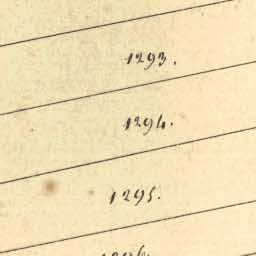 1293.
1294.
1295.